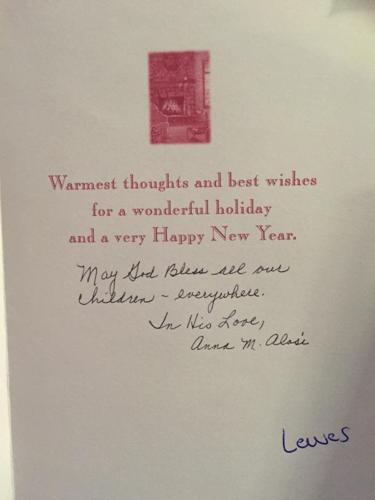 Warmest thoughts and best wishes
for a wonderful holiday
and a very Happy New Year.
May God Bless all our
Children - everywhere.
In His Love,
Anna M. Alosi
Lewes